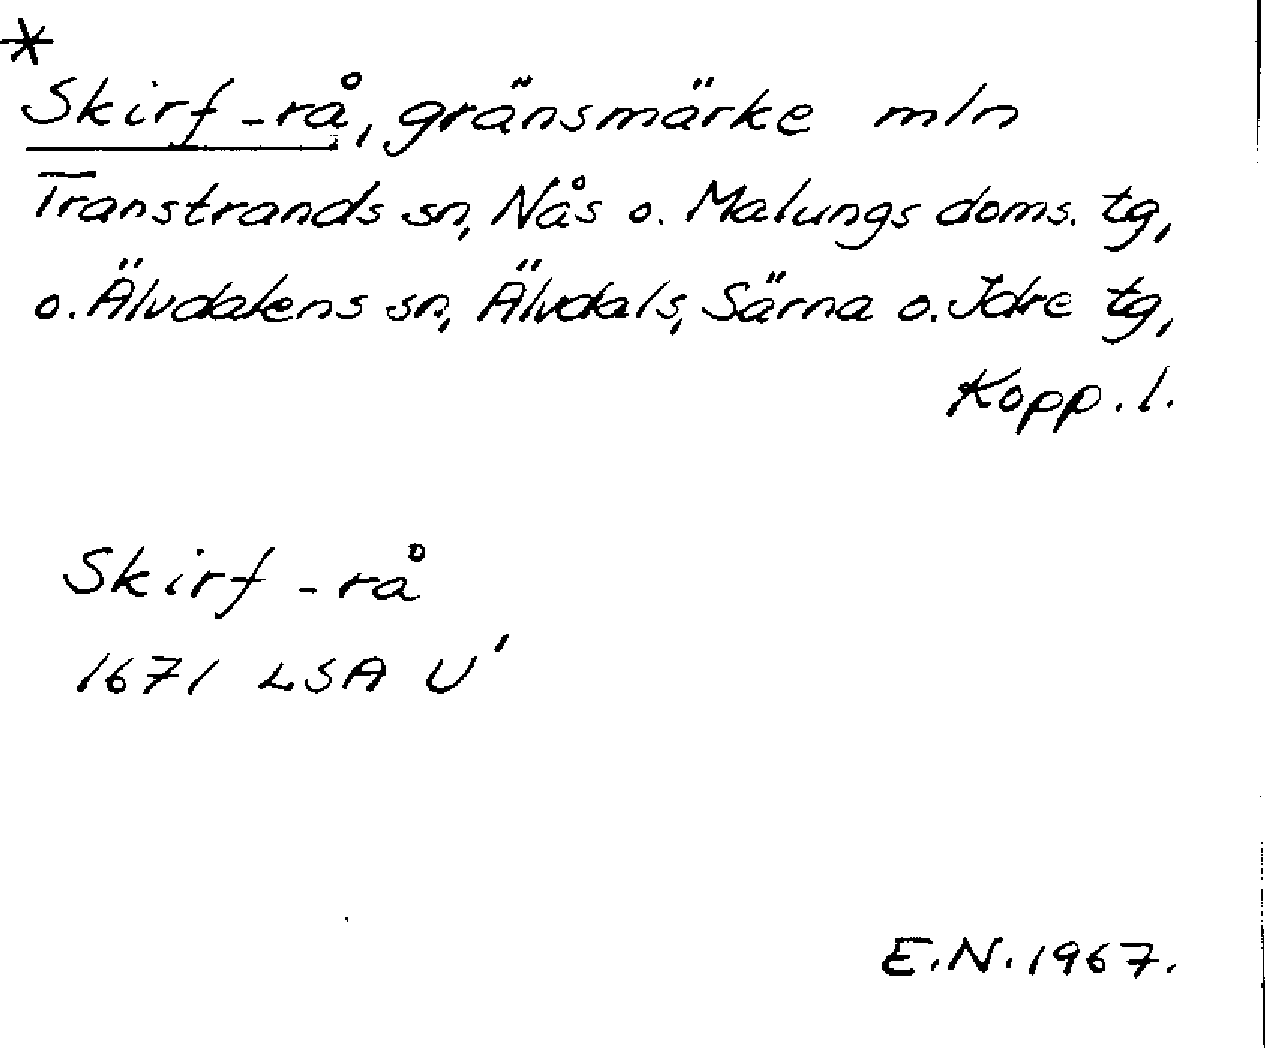 *
Skirf-rå, gränsmärke mln
Transtrands sn, Nås o. Malungs doms. tg,
o. Älvdalens sn, Älvdals, Särna o. Idre tg,
Kopp. l.
Skirf-rå
1671 LSA U'
E.N. 1967.